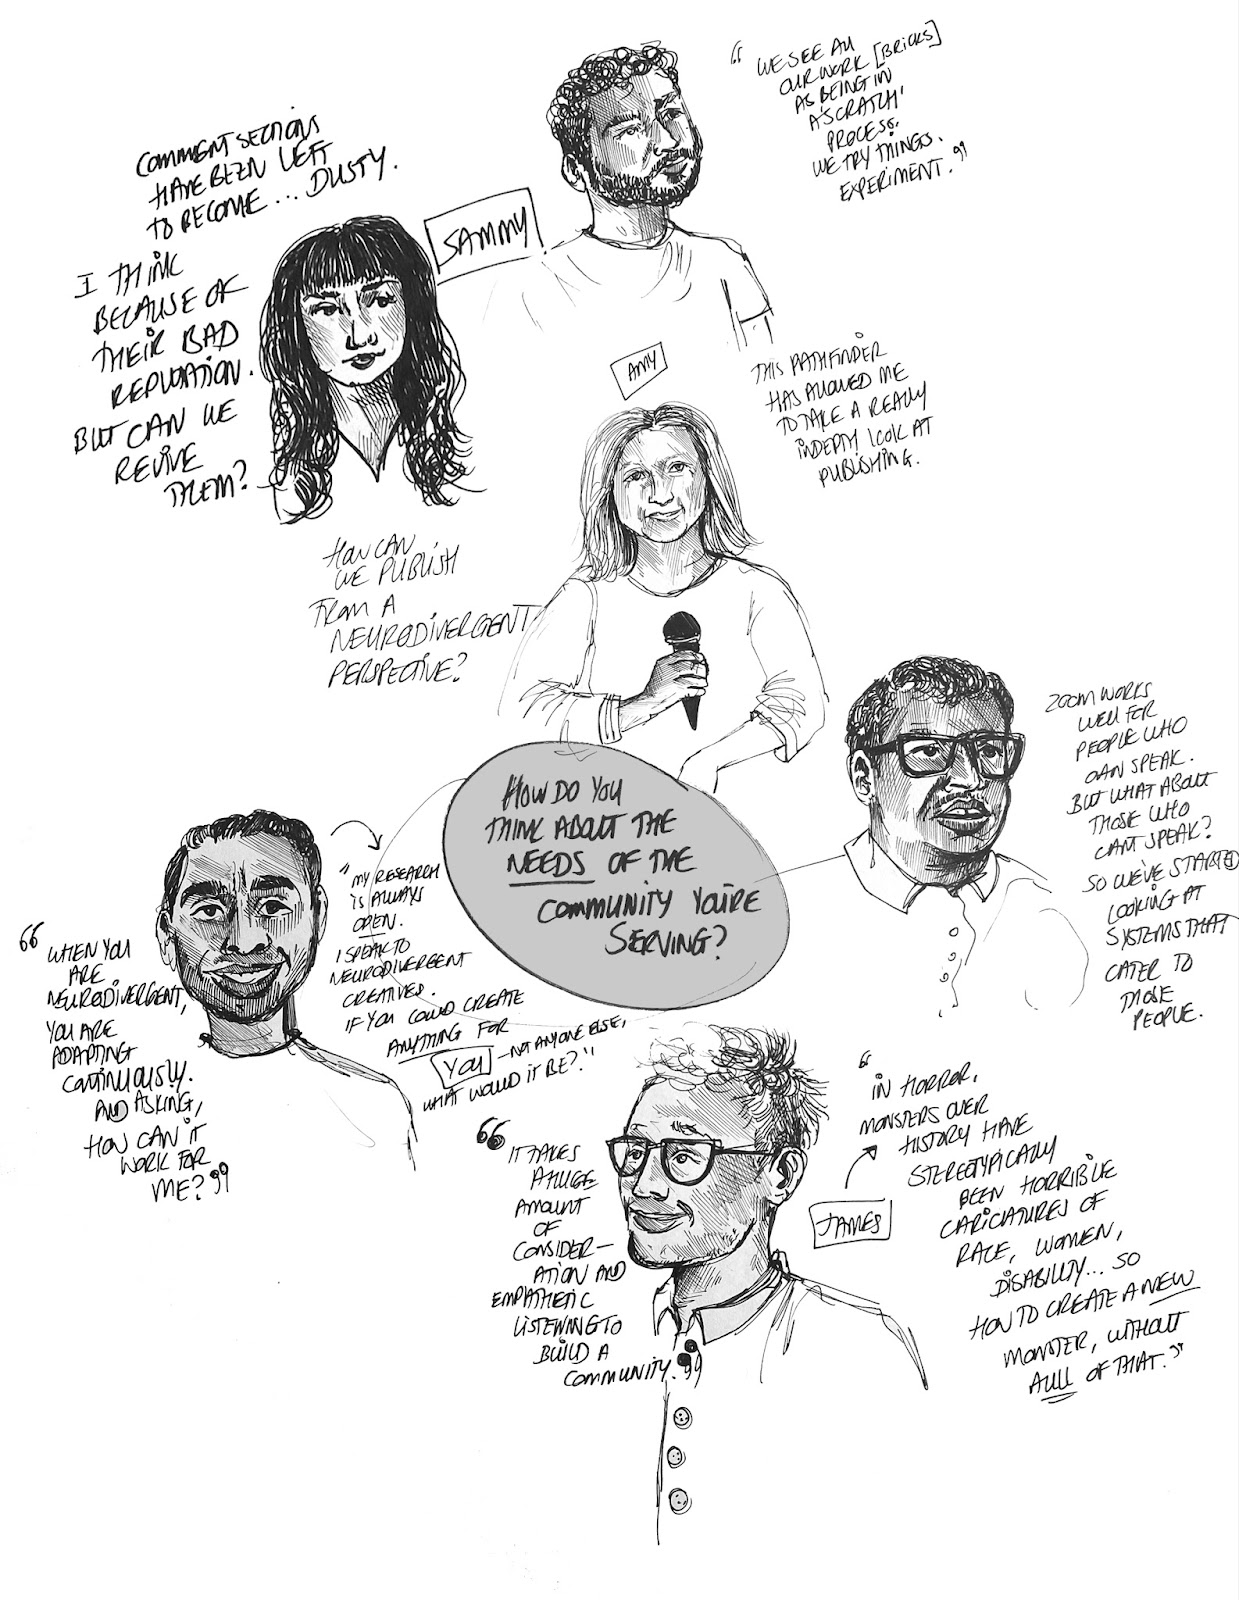 COMMENT SECTIONS
HAVE BEEN LEFT
TO BECOME... DUSTY.
I THINK
BECAUSE OF
THEIR BAD
REPUTATION.
BUT CAN WE
REVIVE
THEM?
SAMMY
"WE SEE ALL
OUR WORK [BRICKS]
AS BEING IN
A 'SCRATCH'
PROCESS.
WE TRY THINGS.
EXPERIMENT."
AMY
THIS PATHFINDER
HAS ALLOWED ME
TO TAKE A REALLY
INDEPTH LOOK AT
PUBLISHING.
HOW CAN
WE PUBLISH
FROM A
NEURODIVERGENT
PERSPECTIVE?
HOW DO YOU
THINK ABOUT THE
NEEDS OF THE
COMMUNITY YOU'RE
SERVING?
ZOOM WORKS
WELL FOR
PEOPLE WHO
CAN SPEAK.
BUT WHAT ABOUT
THOSE WHO
CANT SPEAK?
SO WE'VE STARTED
LOOKING AT
SYSTEMS THAT
CATER TO
THOSE
PEOPLE.
"WHEN YOU
ARE
NEURODIVERGENT,
YOU ARE
ADAPTING
CONTINUOUSLY.
AND ASKING,
HOW CAN IT
WORK FOR
ME?"
"MY RESEARCH
IS ALWAYS
OPEN.
I SPEAK TO
NEURODIVERGENT
CREATIVES.
IF YOU COULD CREATE
ANYTHING FOR
YOU - NOT ANYONE ELSE,
WHAT WOULD IT BE?"
"IT TAKES
A HUGE
AMOUNT
OF
CONSIDER-
ATION AND
EMPATHETIC
LISTENING TO
BUILD A
COMMUNITY."
JAMES
"IN HORROR,
MONSTERS OVER
HISTORY HAVE
STEREOTYPICALLY
BEEN HORRIBLE
CARICATURES OF
RACE, WOMEN,
DISABILITY... SO
HOW TO CREATE A NEW
MONSTER, WITHOUT
ALL OF THAT."